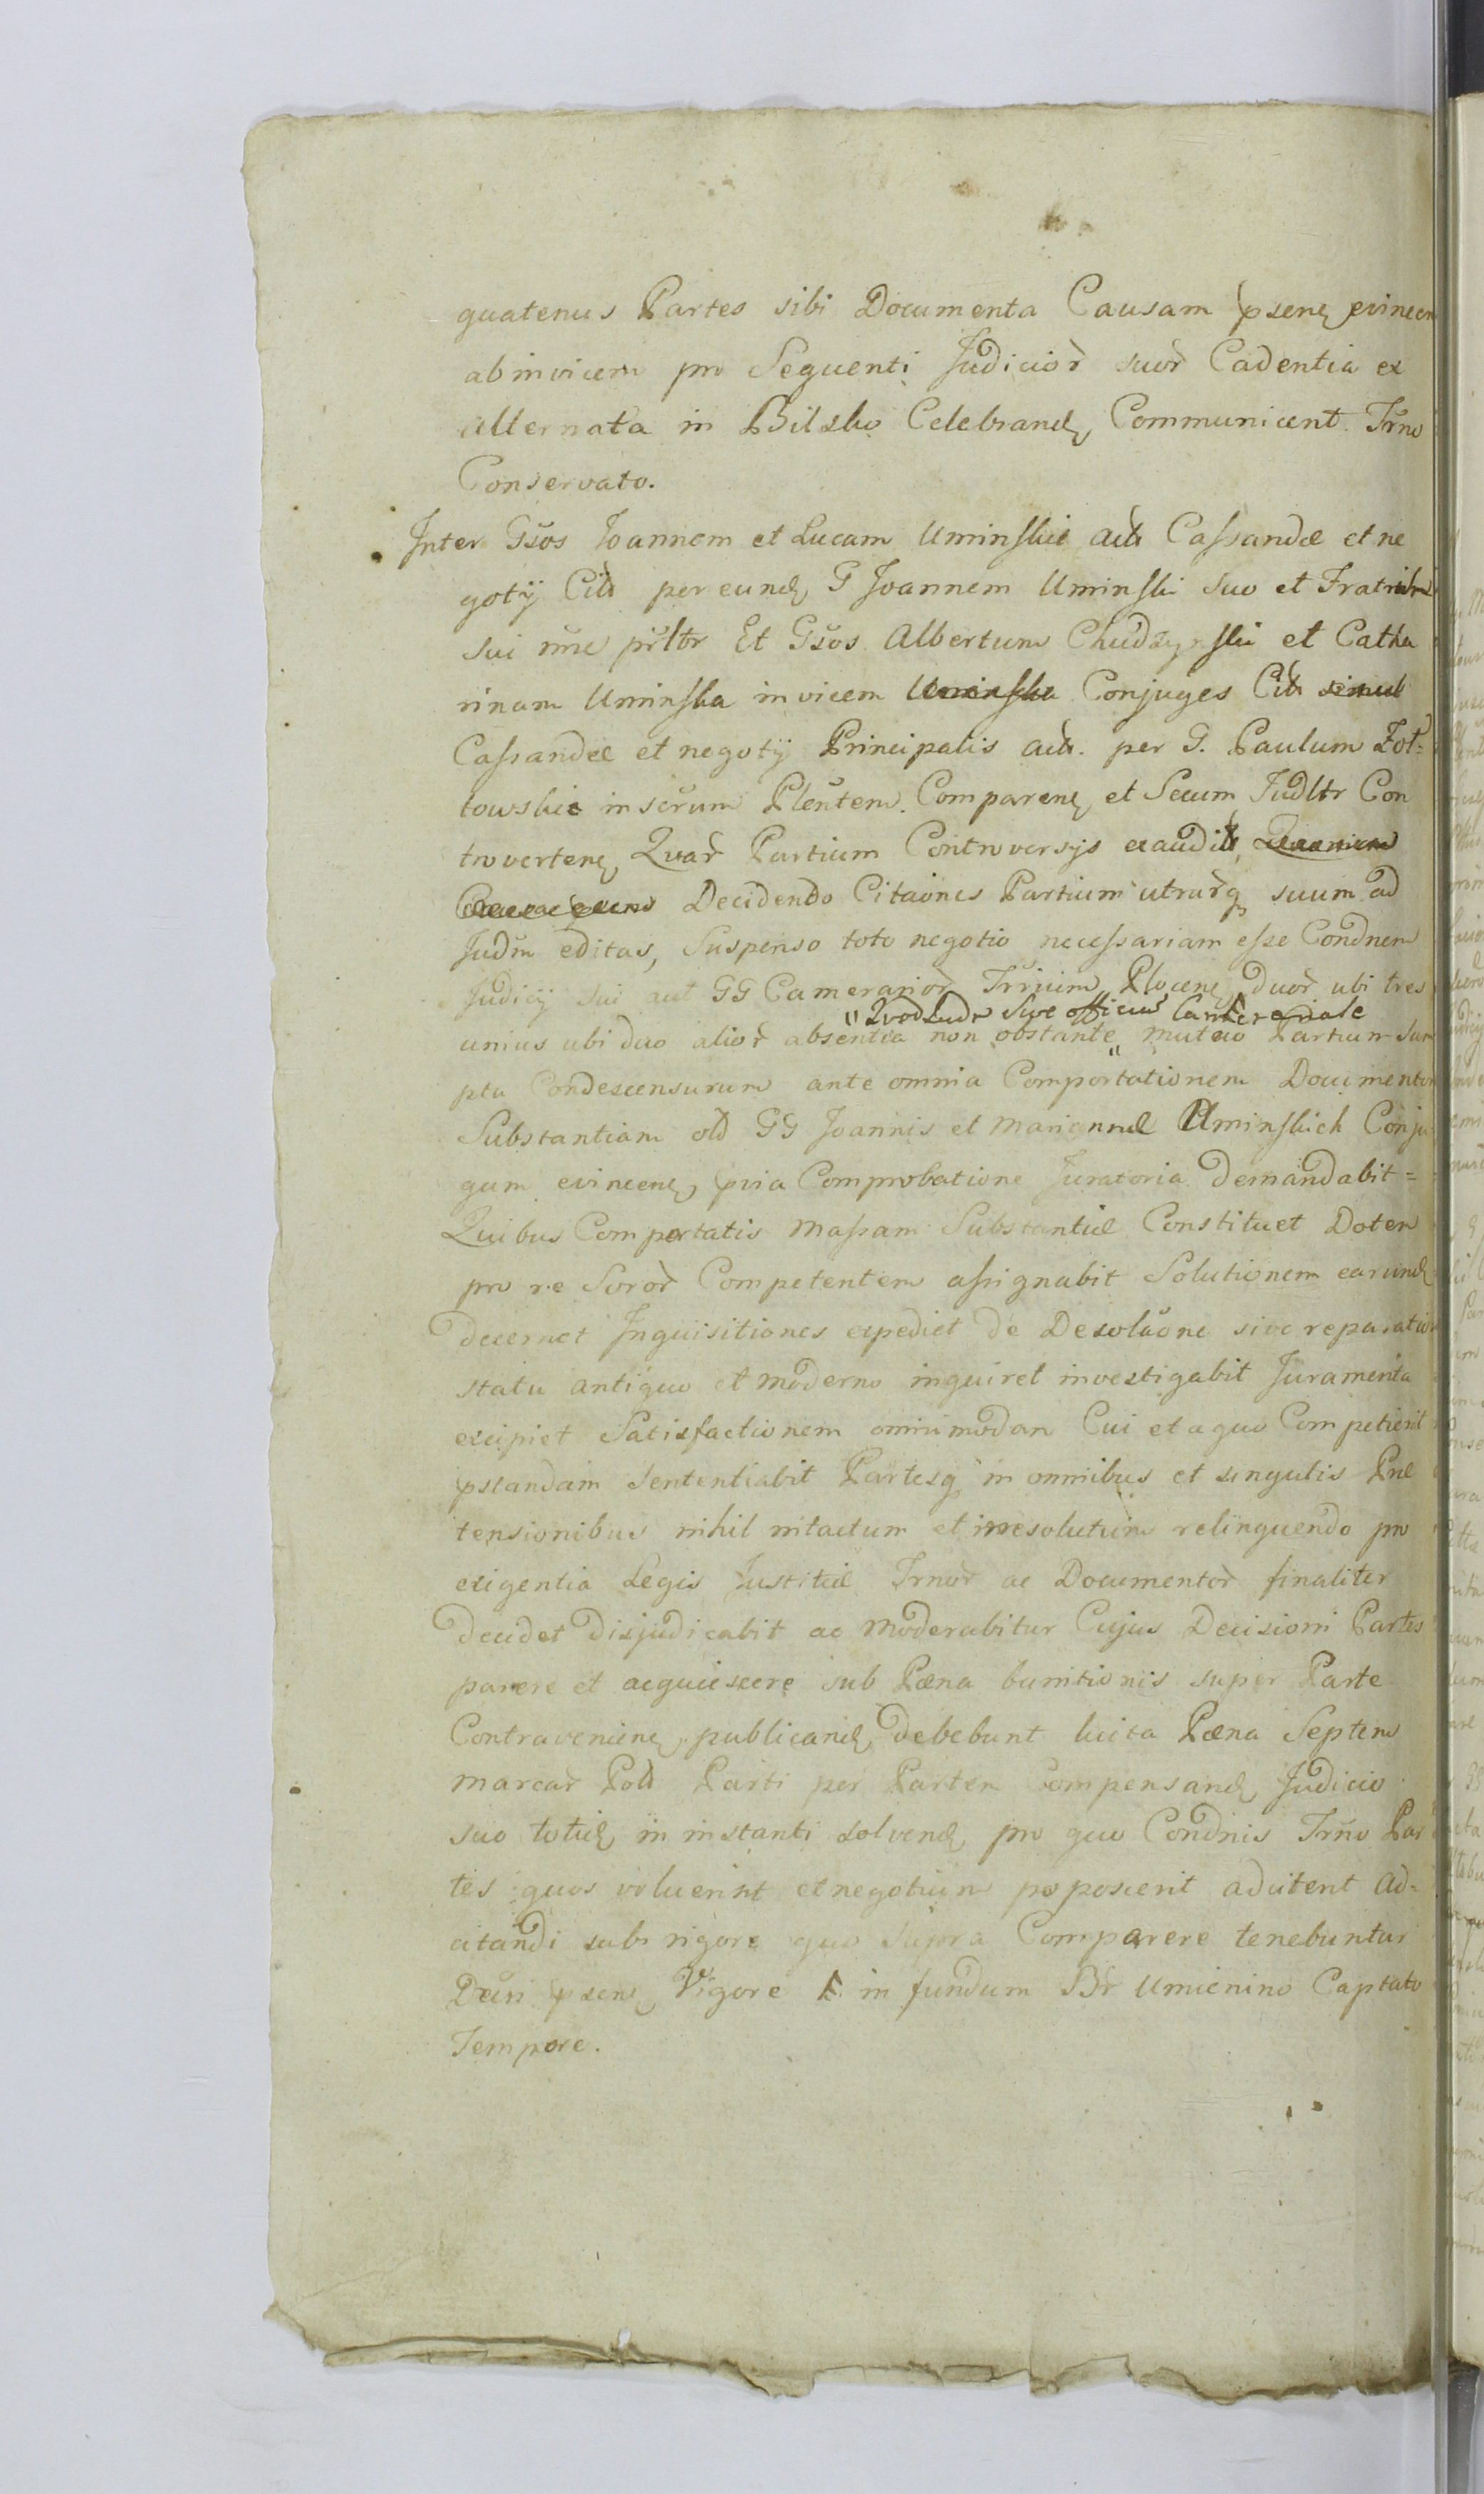 quatenus Partes sibi Documenta Causam pseng evincen
abinvicem pro Sequenti Judicior suor Cadentia ex
alternata in Bilsko Celebrand Communicent Trno
Conservato.
Inter Gsos Joannem et Lucam Uminskie act Cassandæ et ne
gotÿ Cit per eund G Joannem Uminski suo et Fratris
sui nne prltr Et Gsos Albertum Chudzynski et Catha
rinam Uminska invicem Conjuges Cit simul
Cassandæ et negotÿ Principalis act. per G. Paulum Zot=
towskie inscrum Plentem Comparen et Secum Judltr Con
troverten, Quar Partium Controversÿs exaudit
Decidendo Citaones Partium utrarq suum ad
Judm editas, Suspenso toto negotio necessariam esse Condnem
Judicÿ sui aut GG Camerarior Trrium Plocen duor ubi tres
"Quod Judm sive officium Camerariale
unius ubi duo alior absentia non obstante " mutuo Partium Sum
ptu Condescensurum ante omnia Comportationem Documentor
Substantiam old GG Joannis et Mariannæ Uminskich Conju
gum evincen, pvia Comprobatione Juratoria Demandabit=
Quibus Comportatis Massam Substantiæ Constituet Dotem
pro re Soror Competentem assignabit Solutionem earund
decernet Inquisitiones expediet de Desolaone sive reparation
statu antiquo et moderno inquiret investigabit Juramenta
excipiet Satisfactionem omnimodam Cui et a quo Competierit
pstandam Sententiabit Partesq in omnibus et singulis Præ
tensionibus nihil intactum et irresolutum relinquendo pro
exigentia Legis Justitiæ Trnor ac Documentor finaliter
decidet disjudicabit ac moderabitur Cujus Decisioni Partes
parere et acquiescere sub Pæna bannitionis super Parte
Contravenien publicand debebunt luita Pæna Septem
marcar Poll Parti per Partem Compensand Judicio
suo totid in instanti solvend pro quo Condnis Trno Par
tes quos voluerint et negotium poposcerit adcitent Ad=
citandi sub rigore quo supra Comparere tenebuntur
Dcti psens Vigore in fundum Br Umienino Captato
Tempore.